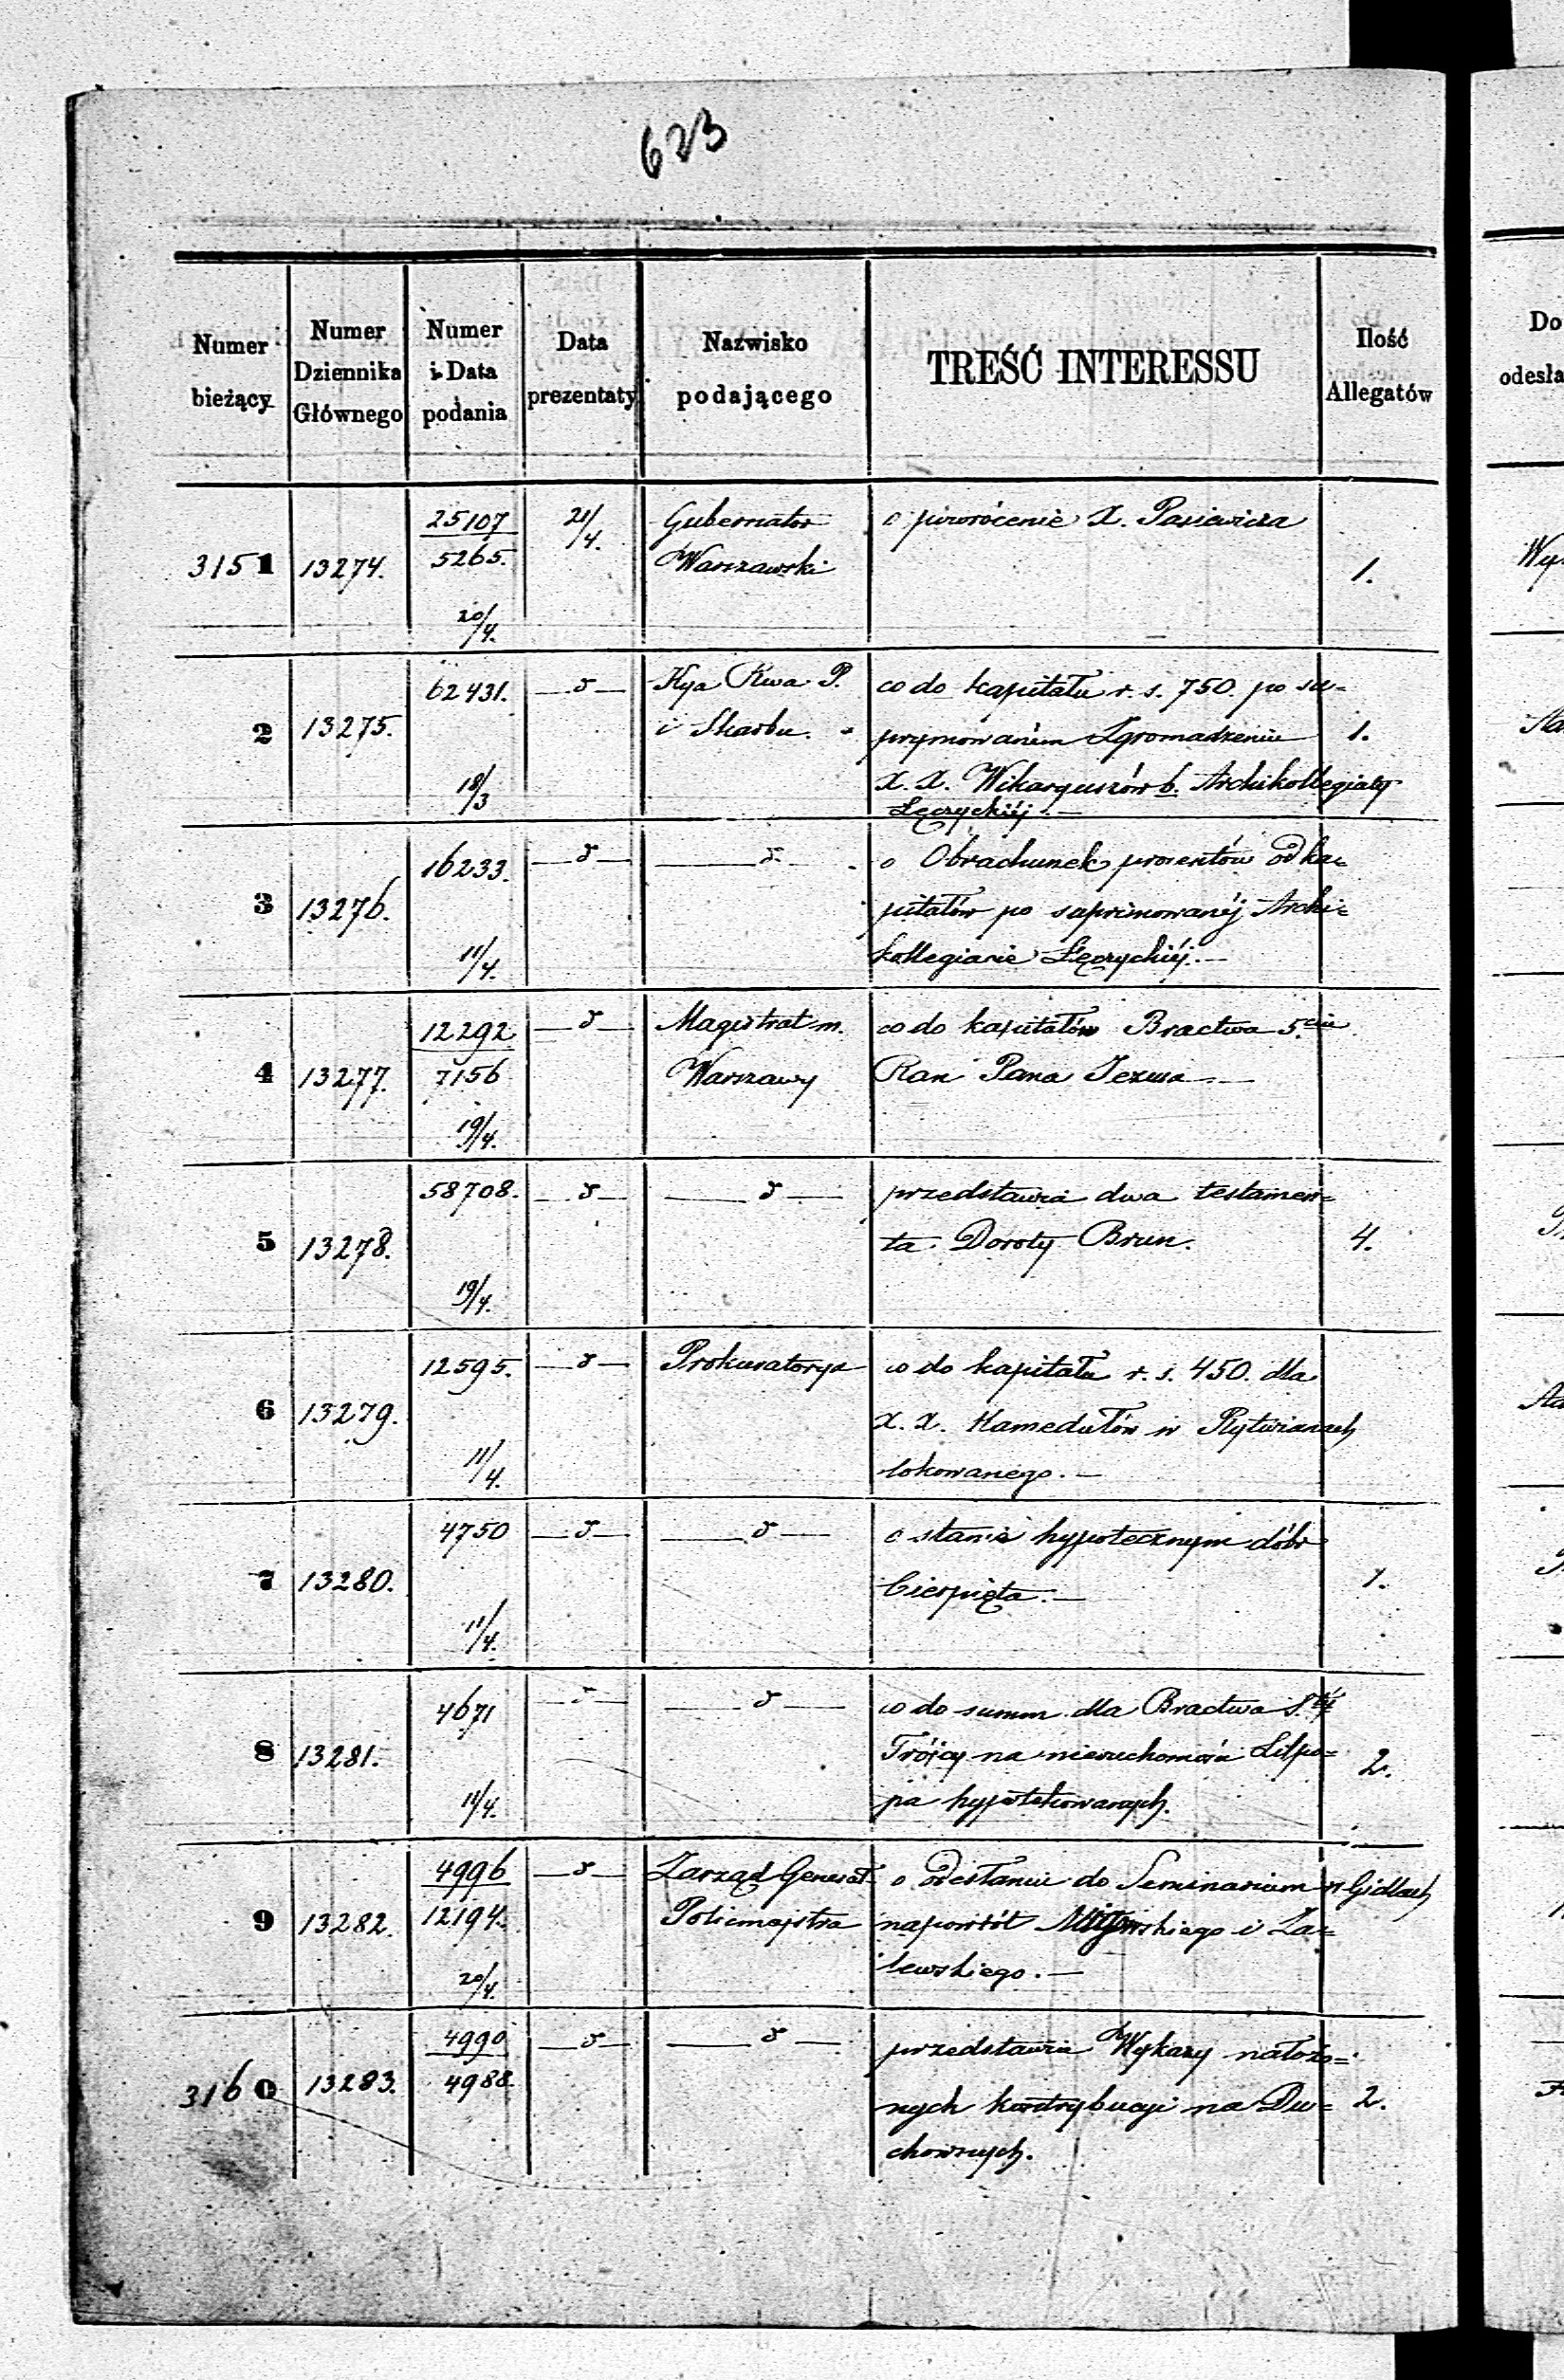 623
Numer bieżący
Numer Dziennika Głównego
Numer i Data podania
Data prezentaty
Nazwisko podającego
TREŚĆ INTERESSU
Ilość Allegatów
Do
odesła
3151 13274. 25107 21/4. Gubernator o powrócenie X. Pasiewicza
5265. Warszawski 1.
20/4.
2 13275. 62431. d Kya Rwa P. co do kapitału r. s. 750. po su=
i Skarbu. prymowaném Zgromadzeniu 1.
18/3 X. X. Wikaryuszów b. Archikollegiaty
Łęczyckiéj. —
3 13276. 16233. d d o Obrachunek procentów od ka=
pitałów po suprimowanéj Archi=
11/4. kollegiacie Łęczyckiéj. —
4 13277. 12292 d Magistrat m. co do kapitałów Bractwa 5.ciu
7156 Warszawy Ran Pana Jezusa —
19/4.
5 13278. 58708. d d przedstawia dwa testamen=
ta Doroty Brun. 4.
19/4.
6 13279. 12595. d Prokuratorya co do kapitału r. s. 450. dla
X. X. Kamedułów w Rytwianach
11/4. lokowanego. —
7 13280. 4750 d d o stanie hypotecznym dóbr
Cierpięta. — 1.
11/4.
8 13281. 4671 d d co do summ dla Bractwa S.téj
Trójcy na nieruchomości Lilpo= 2.
11/4. pa hypotekowanych.
9 13282. 4996 d Zarząd Generał o odesłanie do Seminarium w Gidlach
12194. Policmajstra napowrót i Za=
20/4. lewskiego. —
3160 13283. 4990 d d przedstawia Wykazy nałożo=
4988. nych kontrybucyi na Du= 2.
chownych.